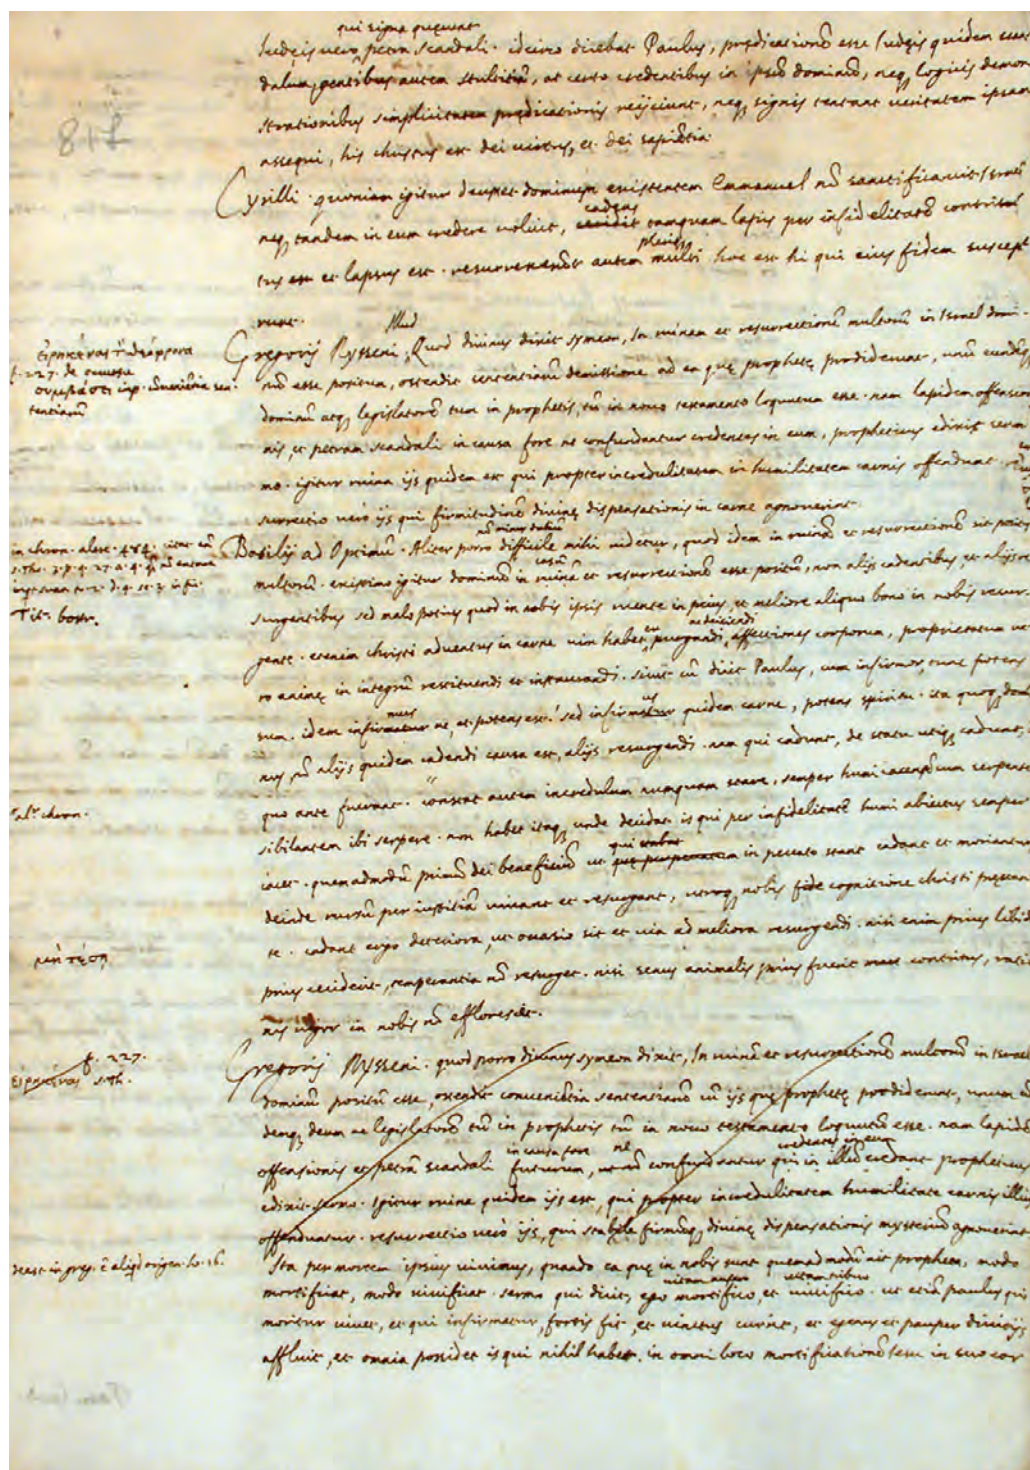 qui signa quęrunt
Iudęis vero petra scandali. idcirco dicebat Paulus, prędicationē esse Iudęis quidem scan
dalum, gentibus autem stultitiā, at certo credentibus in ipsū dominū, neq₃ logicis demon
strationibus simplicitatem prędicationis reijciunt, neq₃ signis tentant veritatem ipsam
assequi, his christus est dei virtus, et dei sapiētia.
Cyrilli. quoniam igitur deum et dominum existentem Emmanuel nō sanctificavit Israel
cadens
neq₃ tandem in eum credere voluit, tamquam lapis per infidelitatē contritus
pleriq₃
tus est et lapsus est. resurrexerūt autem multi hoc est hi qui eius fidem suscepe
runt.
Illud
Gregorij Nysseni, Quod divinus dixit symeon, In ruinam et resurrectionē multorū in Israel domi-
nū esse positum, ostendit sententiarū ad ea quę prophetę prodiderunt, unū eundēq₃
f. 227. de
tentiarū
dominū atq₃ legislatorē tum in prophetis, tū in novo testamento loquutum esse. nam lapidem offensio
nis, et petram scandali in causa fore ne confundantur credentes in eum, propheticus edixit sermo
mo. igitur ruina ijs quidem est qui propter incredulitatem in humilitatem carnis offendunt. re
surrectio vero ijs qui firmitudinē divinę dispensationis in carne agnoverint.
in chron. alex. 484.
Basilij ad Optimū. Aliter porro difficile mihi videtur, quod idem in ruinā et resurrectionē sit positus
casū
multorū. existimo igitur dominū in ruinā et resurrectionē esse positū, non alijs cadentibus, et alijs re
Tit. bostr.
surgentibus sed malo potius quod in nobis ipsis ruente in peius, et meliore aliquo bono in nobis resur-
ac deijciendi
gente. etenim christi adventus in carne vim habet, purgandi, affectiones corporum, proprietatum ve
ro animę in integrū restituendi et instaurandi. sicut cū dicit Paulus, cum infirmor, tunc potens
sum. idem infirmatur ne, et potens est? sed infirmatur quidem carne, potens spiritu. ita quoq₃ domi
nus, nō alijs quidem cadendi causa est, alijs resurgendi. nam qui cadunt, de statu utiq₃ cadunt, in
quo ante fuerunt. constat autem incredulum numquam stare, semper humi iacentē cum serpente
al. chron.
sibilantem ibi serpere. non habet itaq₃ unde decidat is qui per infidelitatē humi abiectus semper
qui stabat
iacet. quemadmodū primū dei beneficiū ut in peccato stant cadant et moriantur
deinde rursū per iustitiā vivant et resurgant, utroq₃ nobis fide cognitione christi pręstan
te. cadant ergo deteriora, ut occasio sit et via ad meliora resurgendi. nisi enim prius libido
prius ceciderit, temperantia nō resurget. nisi sensus animalis prius fuerit contritus, ratio
nis vigor in nobis nō efflorescet.
f. 227.
Gregorij Nysseni. quod porro divinus symeon dixit, In ruinā et resurrectionē multorū in Israel
dominū positū esse, ostendit convenientia sententiarū cū ijs quę prophetę prodiderunt, unum eū
demq₃ deum ac legislatorē tū in prophetis tū in novo testamento loquutū esse. nam lapidē
in causa fore ne credentes in eum
offensionis et petrā scandali futurum, confundantur qui in illū credant propheticus
edixit sermo. Igitur ruina quidem ijs est, qui propter incredulitatem humilitate carnis illius
offenduntur. resurrectio vero ijs, qui stabilē firmāq₃ divinę dispensationis mysteriū agnoverint
Ita per mortem ipsius vivimus, quando ea quę in nobis sunt quemadmodū ait propheta, modo
mortificat, modo vivificat. sermo qui dicit, ego mortifico, et vivifico. ut etiā paulus qui
moritur vivet, et qui infirmatur, fortis fit, et vinctus currit, et egenus et pauper divitijs
affluit, et omnia possidet is qui nihil habet. in omni loco mortificationē Iesu in suo cor